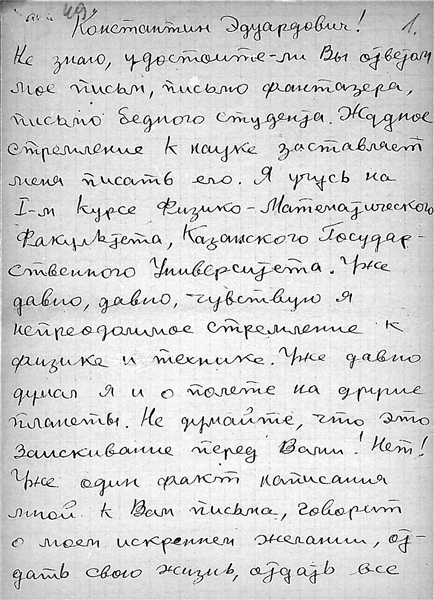 49
Константин Эдуардович! 1.
Не знаю, удостоите-ли Вы ответом
мое письм, письмо фантазера,
письмо бедного студента. Жадное
стремление к науке заставляет
меня писать его. Я учусь на
I-м курсе Физико-Математического
Факультета, Казанского Государ-
ственного Университета. Уже
давно, давно, чувствую я
непреодолимое стремление к
физике и технике. Уже давно
думал я и о полете на другие
планеты. Не думайте, что это
Заискивание перед Вами! Нет!
Уже один факт написания
мной к Вам письма, говорит
о моем искреннем желании, от-
дать свою жизнь, отдать все